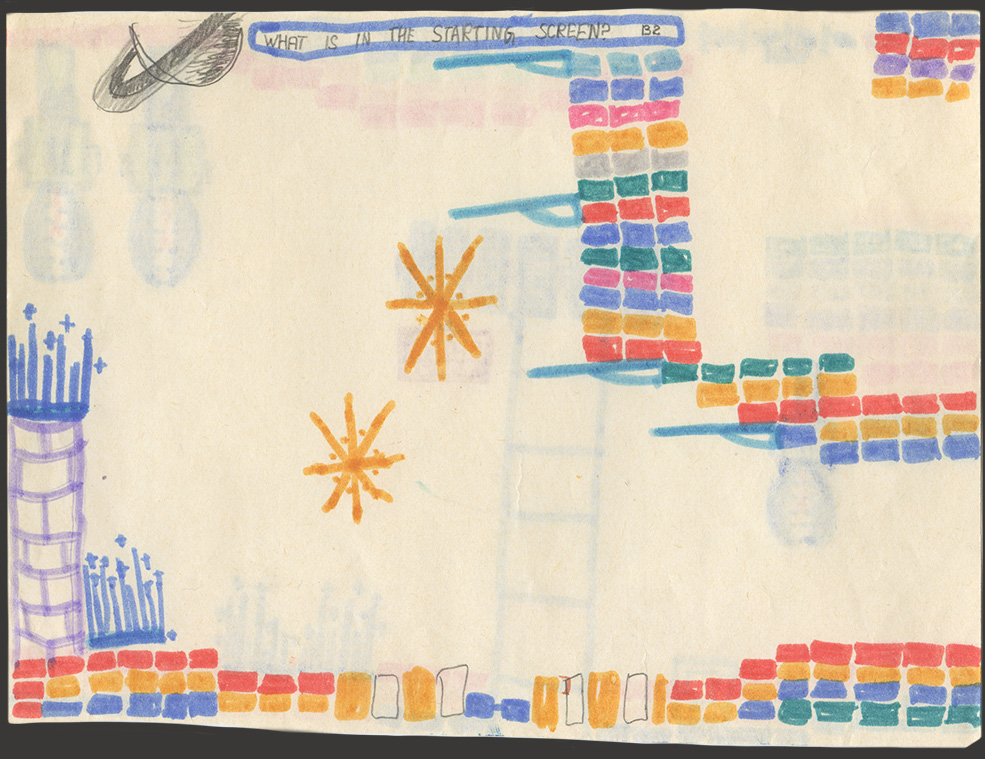 WHAT IS IN THE STARTING SCREEN? B2